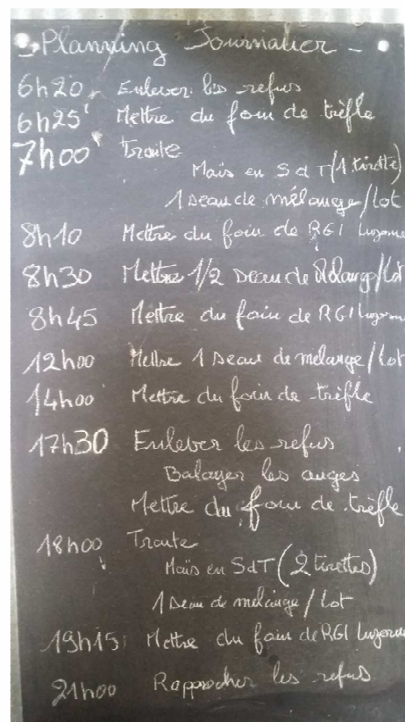 - Planning Journalier -
6h20 Enlever les refus
6h25 Mettre du foin de trèfle
7h00 Traite
Maïs en SdT (1 tirette)
1 seau de mélange / lot
8h10 Mettre du foin de RGI luzerne
8h30 Mettre 1/2 seau de mélange/lot
8h45 Mettre du foin de RGI luzerne
12h00 Mettre 1 seau de mélange / lot
14h00 Mettre du foin de trèfle
17h30 Enlever les refus
Balayer les auges
Mettre du foin de trèfle
18h00 Traite
Maïs en SdT (2 tirettes)
1 seau de mélange / lot
19h15 Mettre du foin de RGI luzerne
21h00 Rapprocher les refus